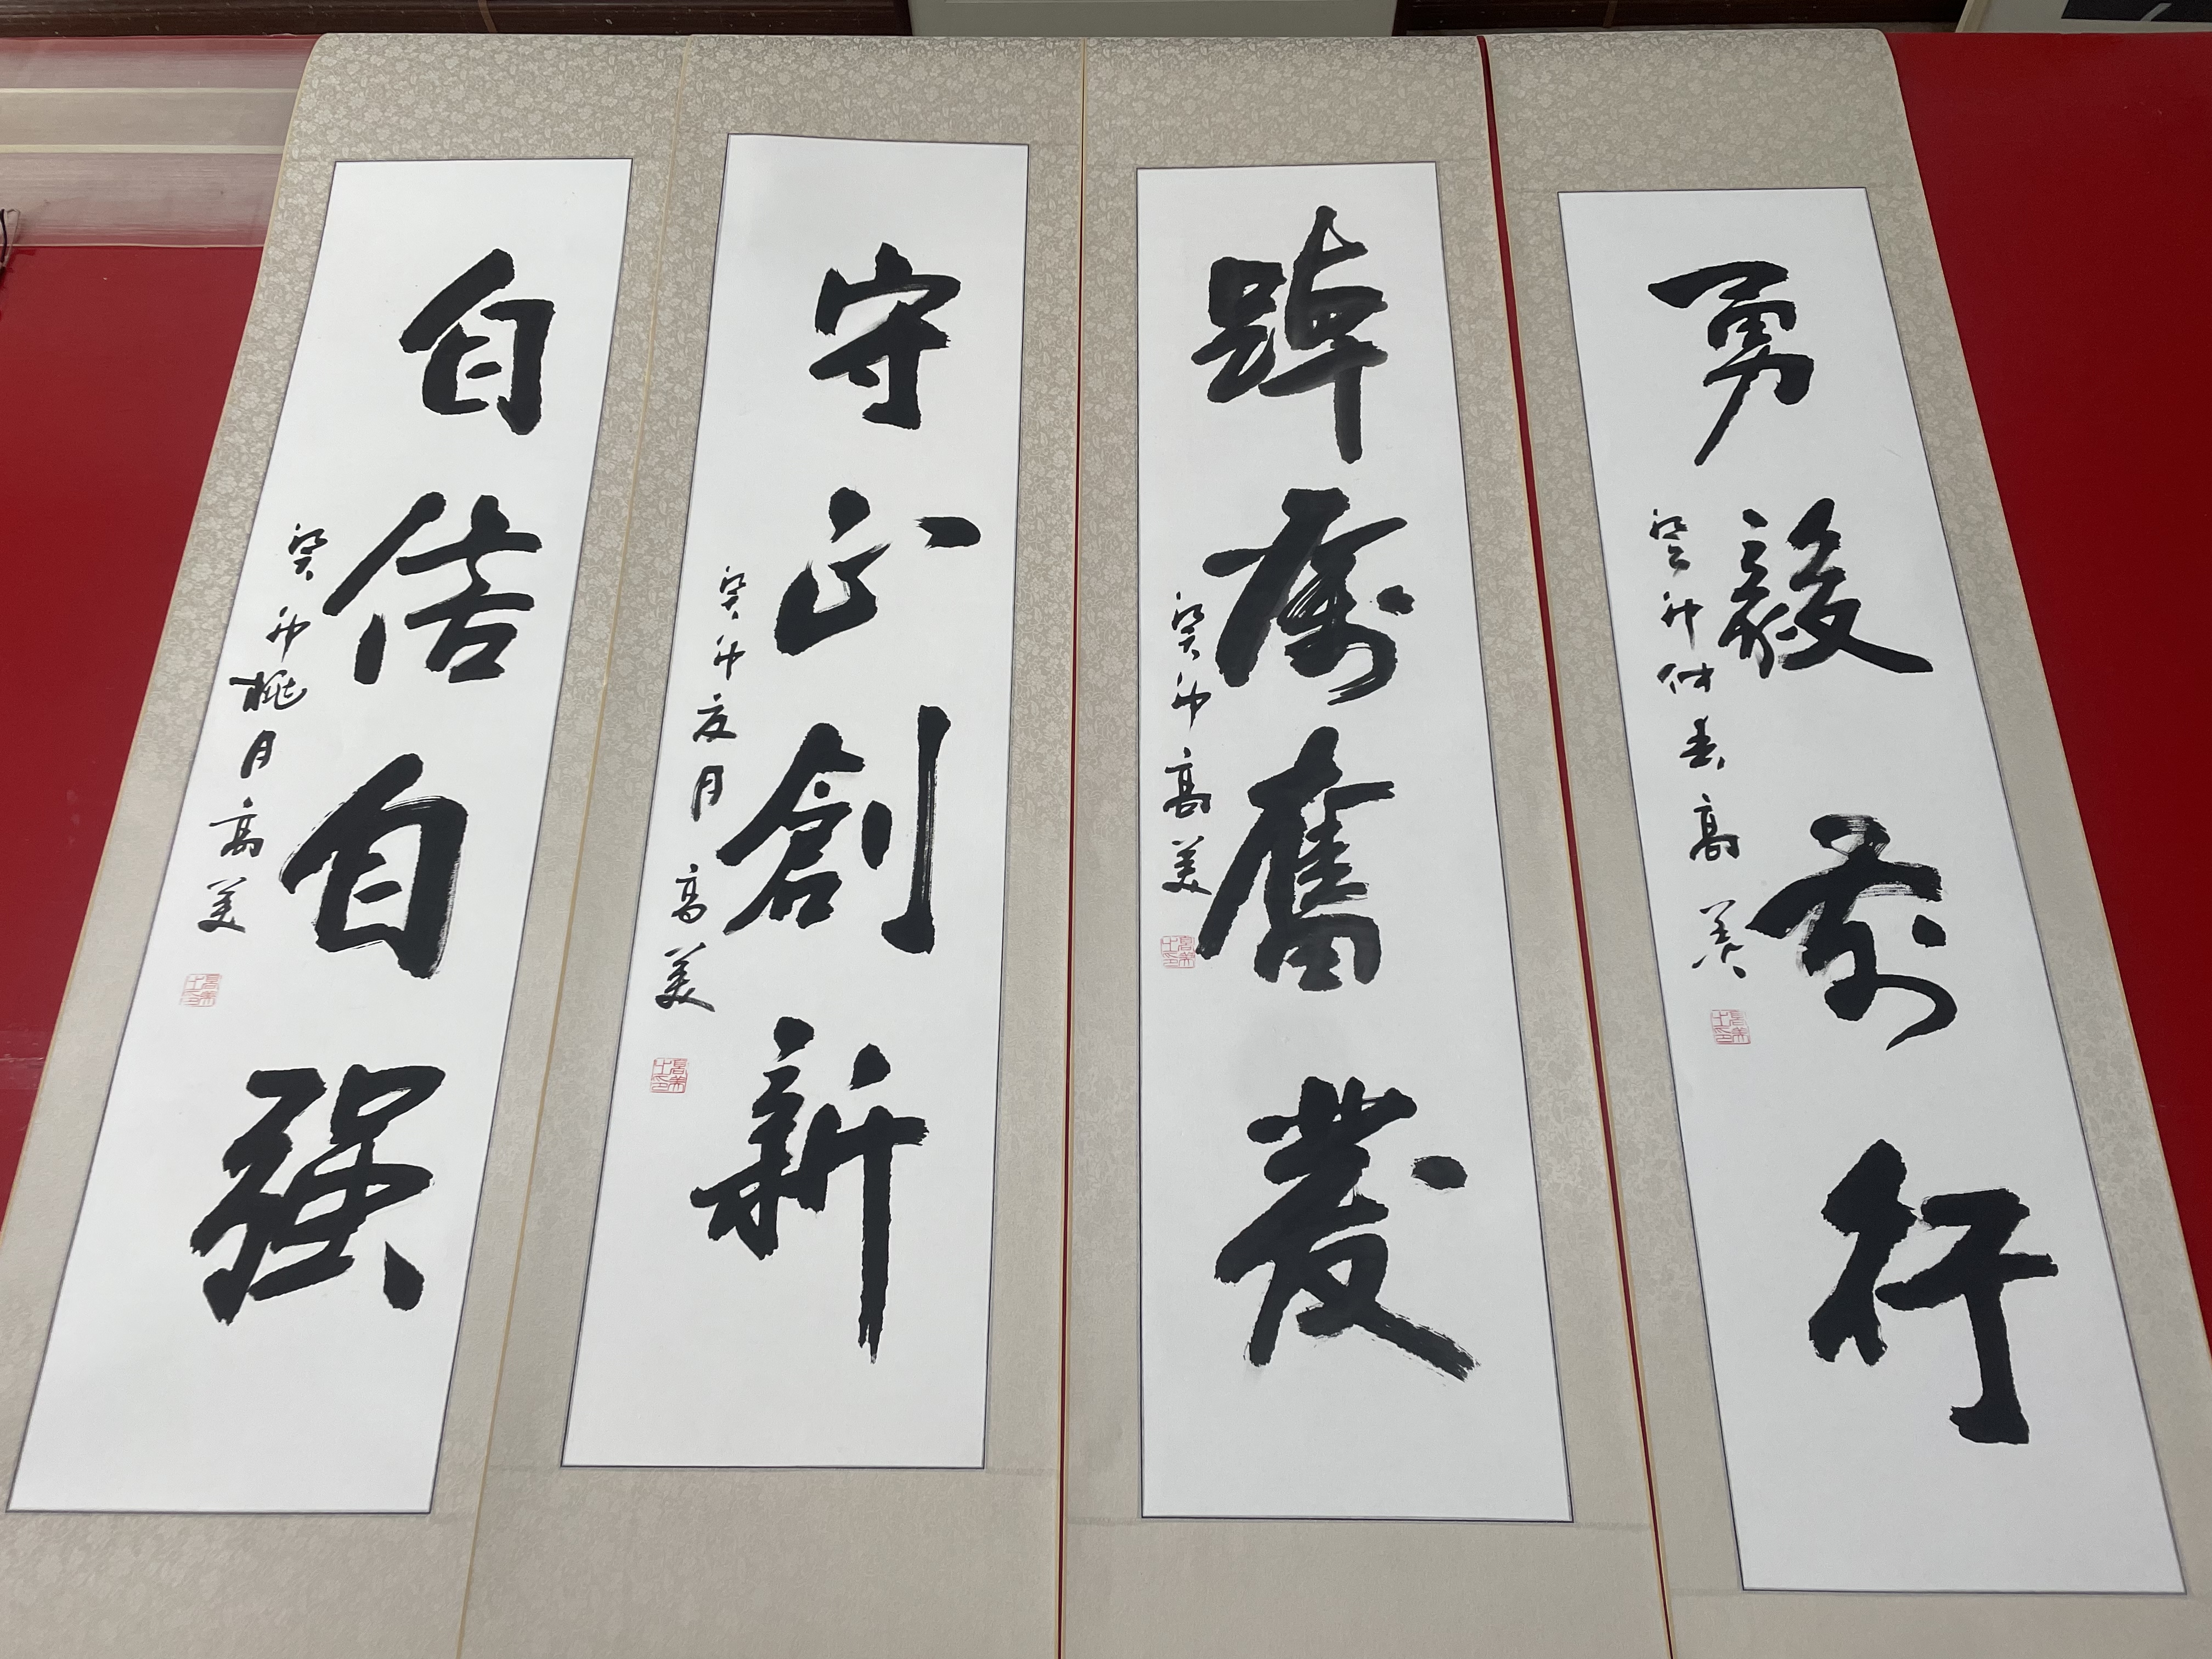 勇毅前行
癸卯仲春高美
踔厲奮發
癸卯高美
守正創新
癸卯夏月高美
自信自强
癸卯桃月高美